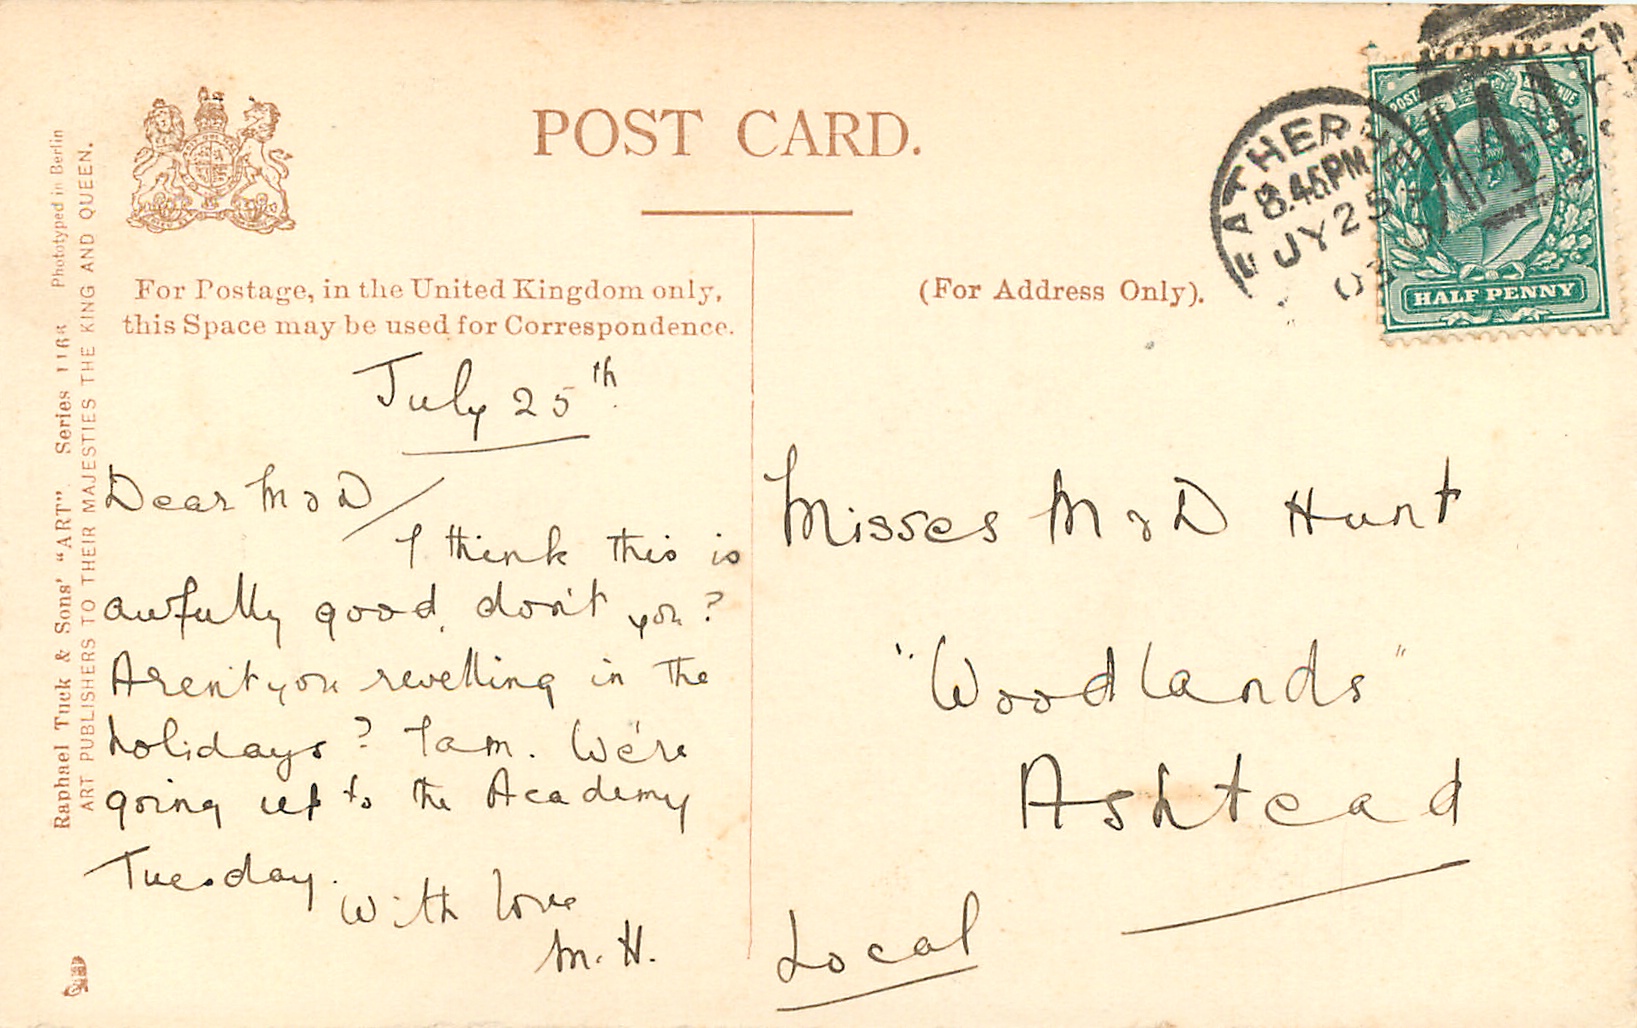 POST CARD.
For Postage, in the United Kingdom only,
this Space may be used for Correspondence.
(For Address Only).
Raphael Tuck & Sons' "ART" Series 1168 Phototyped in Berlin
ART PUBLISHERS TO THEIR MAJESTIES THE KING AND QUEEN.
8.45PM
JY 25
HALF PENNY
July 25th
Dear M & D/
I think this is
awfully good, don't you?
Aren't you revelling in the
holidays? I am. We're
going up to the Academy
Tuesday.
With love
M. H.
Misses M & D Hunt
"Woodlands"
Ashtead
Local